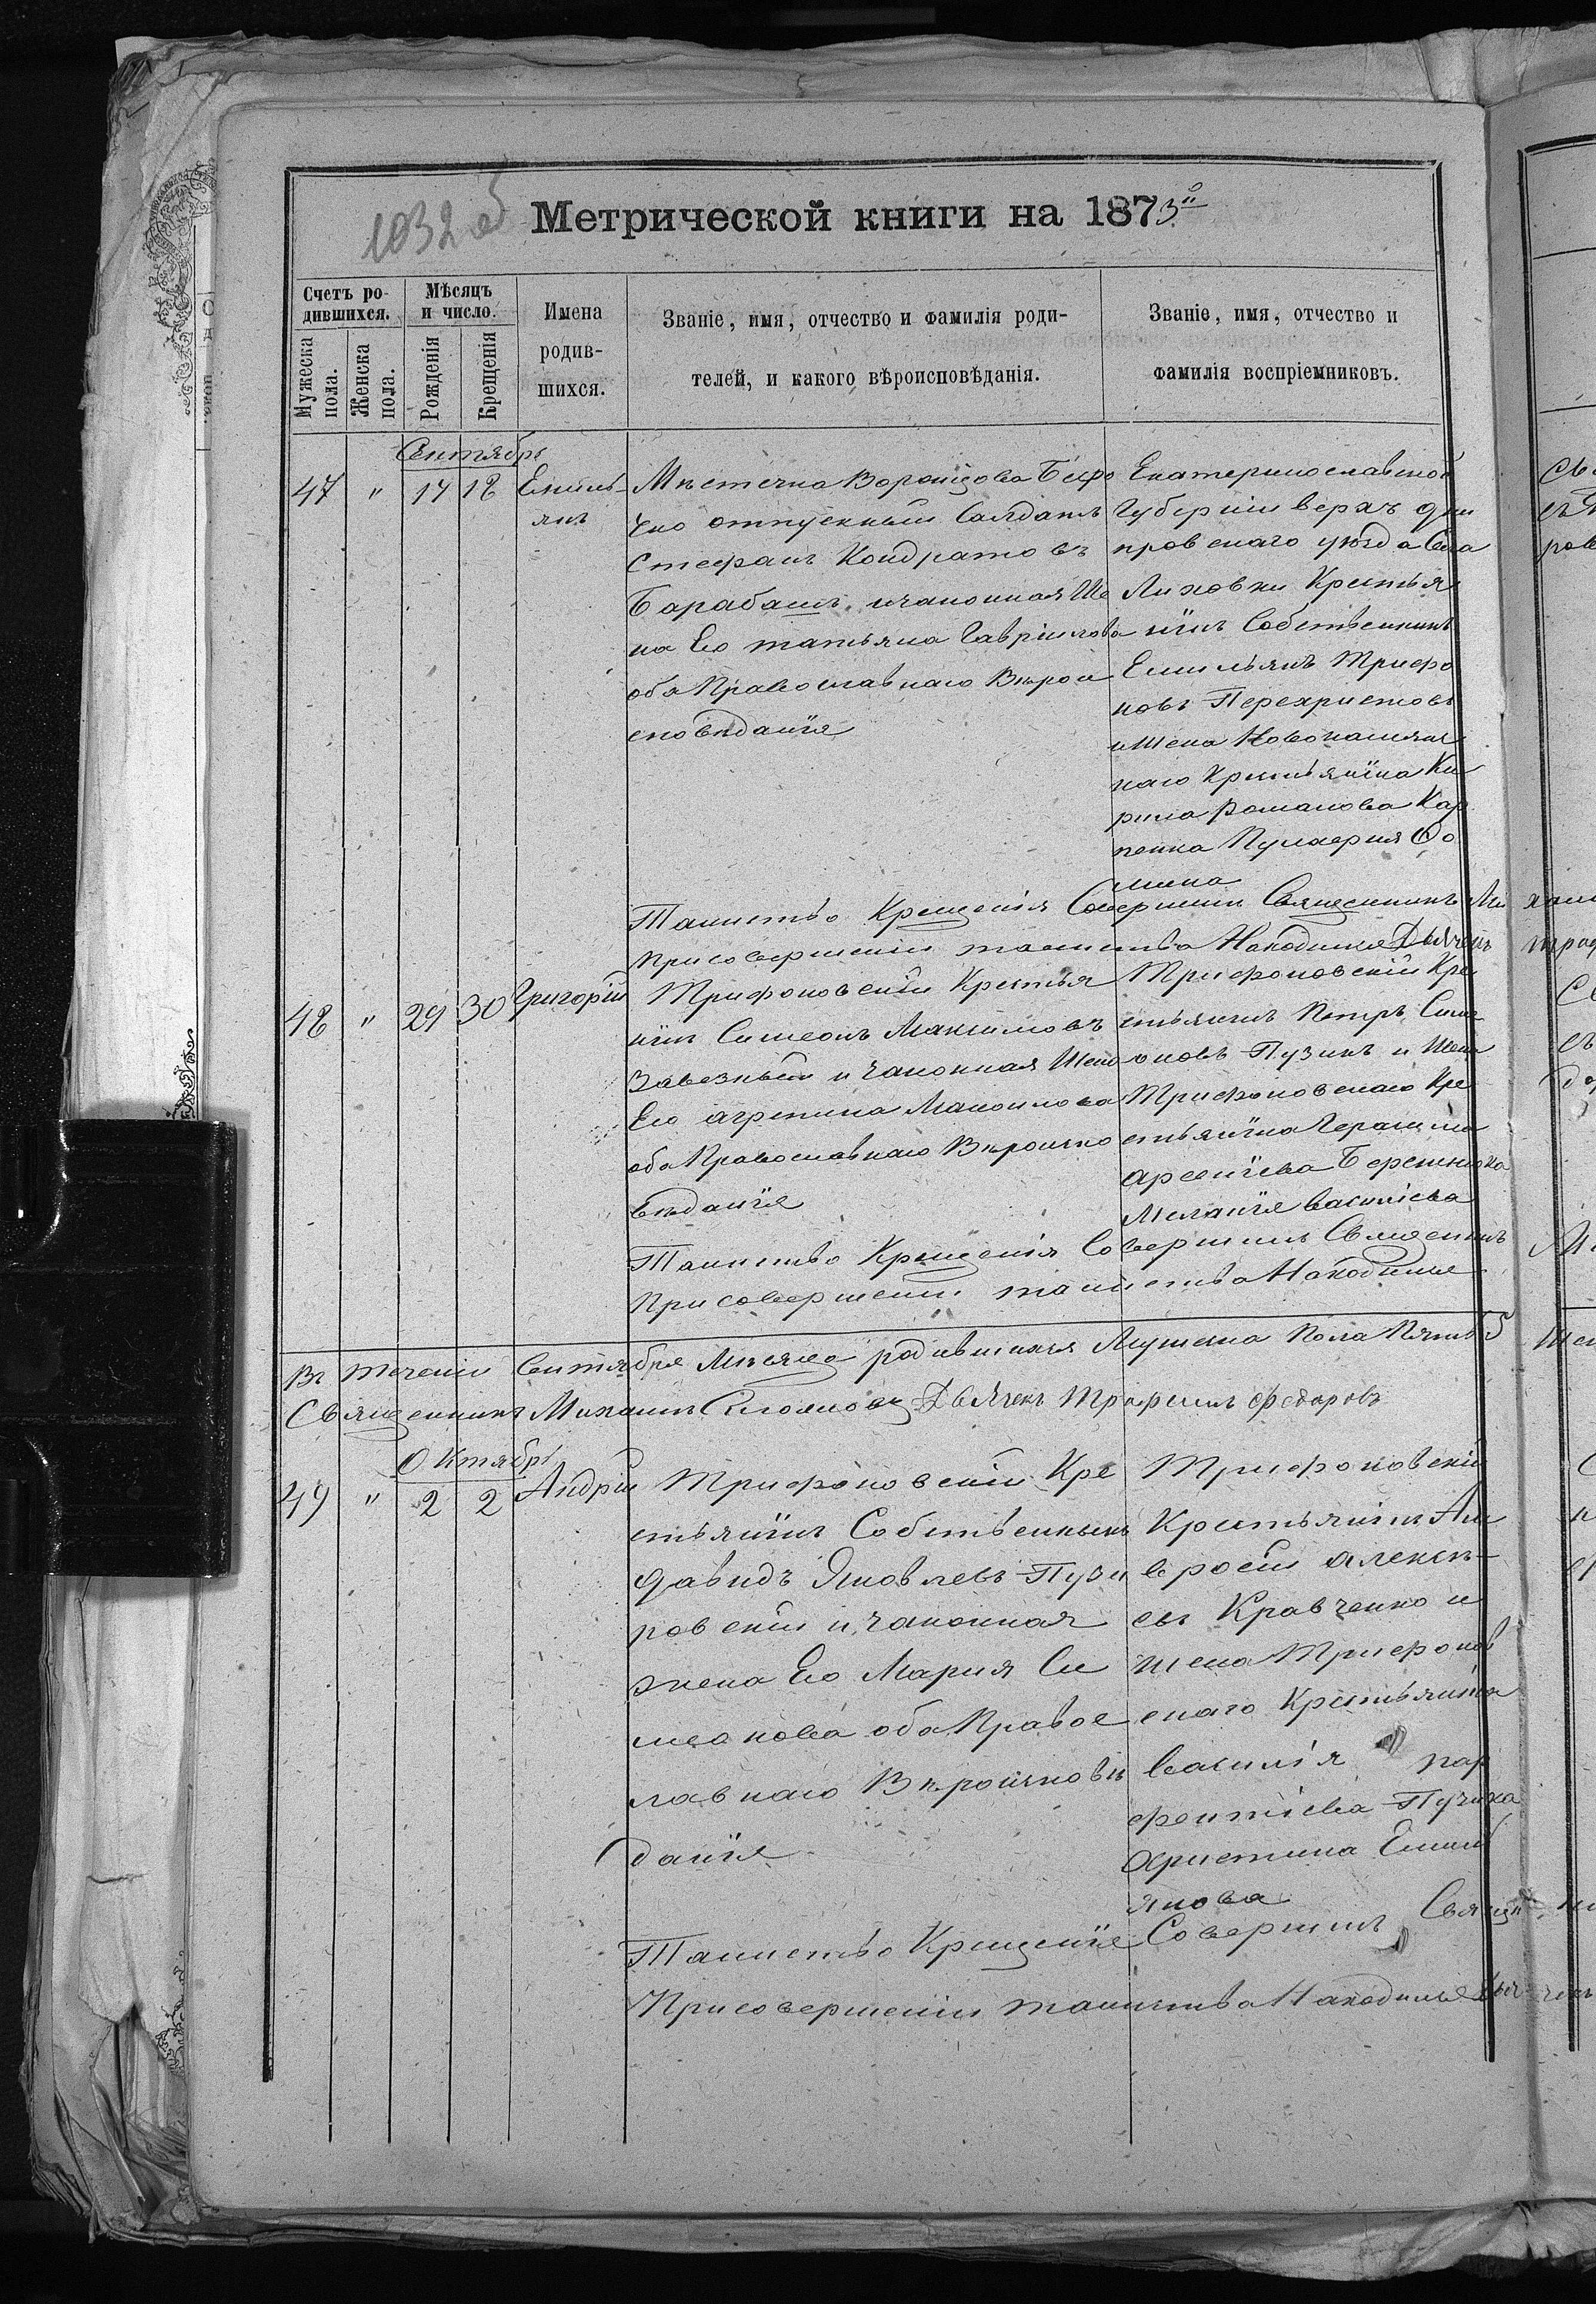 1032 об
Метрической книги на 1873й
Счетъ ро-
дившихся.
Мѣсяцъ
и число.
Мужеска
пола.
Женска
пола.
Рожденія
Крещенія
Имена
родив-
шихся.
Званіе, имя, отчество и фамилія роди-
телей, и какого вѣроисповѣданія.
Званіе, имя, отчество и
фамилія воспріемниковъ.
Сентябрь
47 " 17 18
Емиль-
янъ
Мѣстечка Воронцова
отпускный Салдатъ
Стефанъ Кондратовъ
Барабашъ и законная Же
на Его татьяна Гавріилова
оба Православнаго Вѣрои
сповѣданія
Екатеринославской
Губерніи верхъ дни
провскаго уѣзда Села
Лиховки Крестья
нинъ Собственникъ
Емильянъ Трифо
новъ Перехристовъ
и Жена
наго Крестьянина Ки
рила Романова Кар
пенка Фо
мина
Таинство Крещенія Совершилъ Священникъ Ми
При совершеніи таинства Находился Дьячекъ
48 " 29 30
Григорій
Трифоновскій Крестья
нинъ Симеонъ Максимовъ
и законная Жена
Его агрепина
оба Православнаго Вѣроиспо
вѣданія
Трифоновскій Кре
стьянинъ Петръ Симе
оновъ Пузикъ и Жена
Трифоновскаго Кре
стьянина Герасима
Арсеніева
Меланія василіева
Таинство Крещенія Совершилъ Священникъ
При совершеніи таинства Находился
Въ теченіи Сентября Мѣсяца родившихся Мужеска Пола Пять 5
Священникъ Михаилъ Дьячекъ Трофимъ Федоровъ
Октябрь
49 " 2 2
Андрій
Трифоновскій Кре
стьянинъ Собственникъ
давидъ Яковлевъ Пузи
ровскій и законная
жена Его Мария Си
меонова оба Правос
лавнаго Вѣроисповѣ
данія
Трифоновскій
Крестьянинъ Ам
вросій алексѣ-
евъ Кравченко и
жена Трифонов
скаго Крестьянина
Василія пар
фентіева Пузика
Христина Емиль
янова
Таинство Крещенія Совершилъ Священ
При совершеніи таинства Находился Дьячекъ